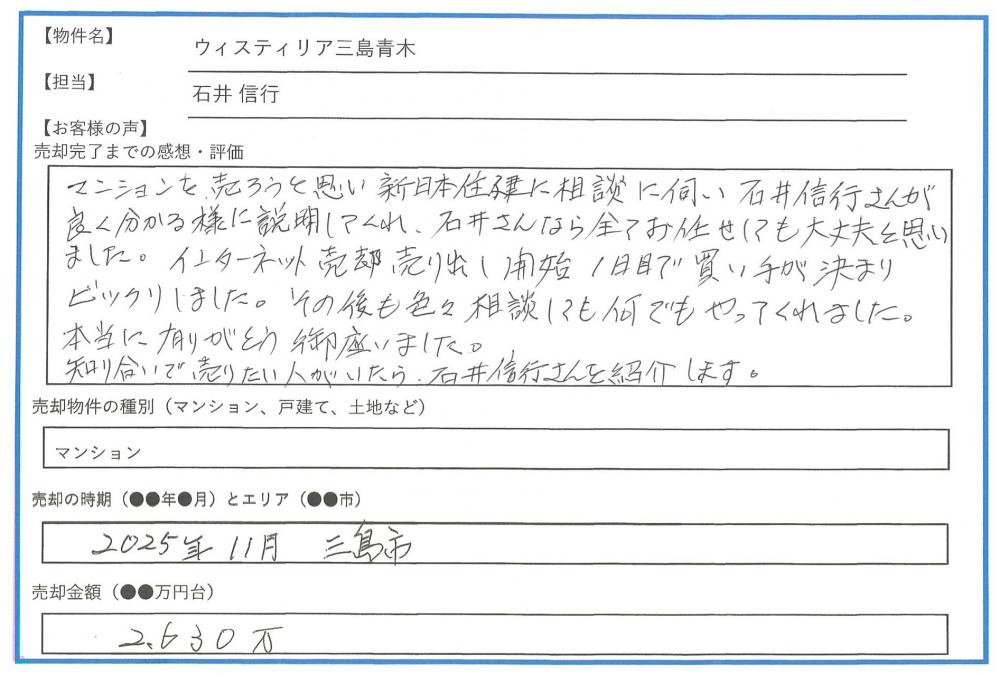 【物件名】
ウィスティリア三島青木
【担当】
石井 信行
【お客様の声】
売却完了までの感想・評価
マンションを売ろうと思い 新日本住建に相談に伺い 石井信行さんが
良く分かる様に説明してくれ、石井さんなら全てお任せしても大丈夫と思い
ました。インターネット売却 売り出し開始 1日目で買い手が決まり
ビックリしました。その後も色々相談しても何でもやってくれました。
本当に有りがとう御座いました。
知り合いで売りたい人がいたら、石井信行さんを紹介します。
売却物件の種別（マンション、戸建て、土地など）
マンション
売却の時期（●●年●月）とエリア（●●市）
2025年11月 三島市
売却金額（●●万円台）
2.630万